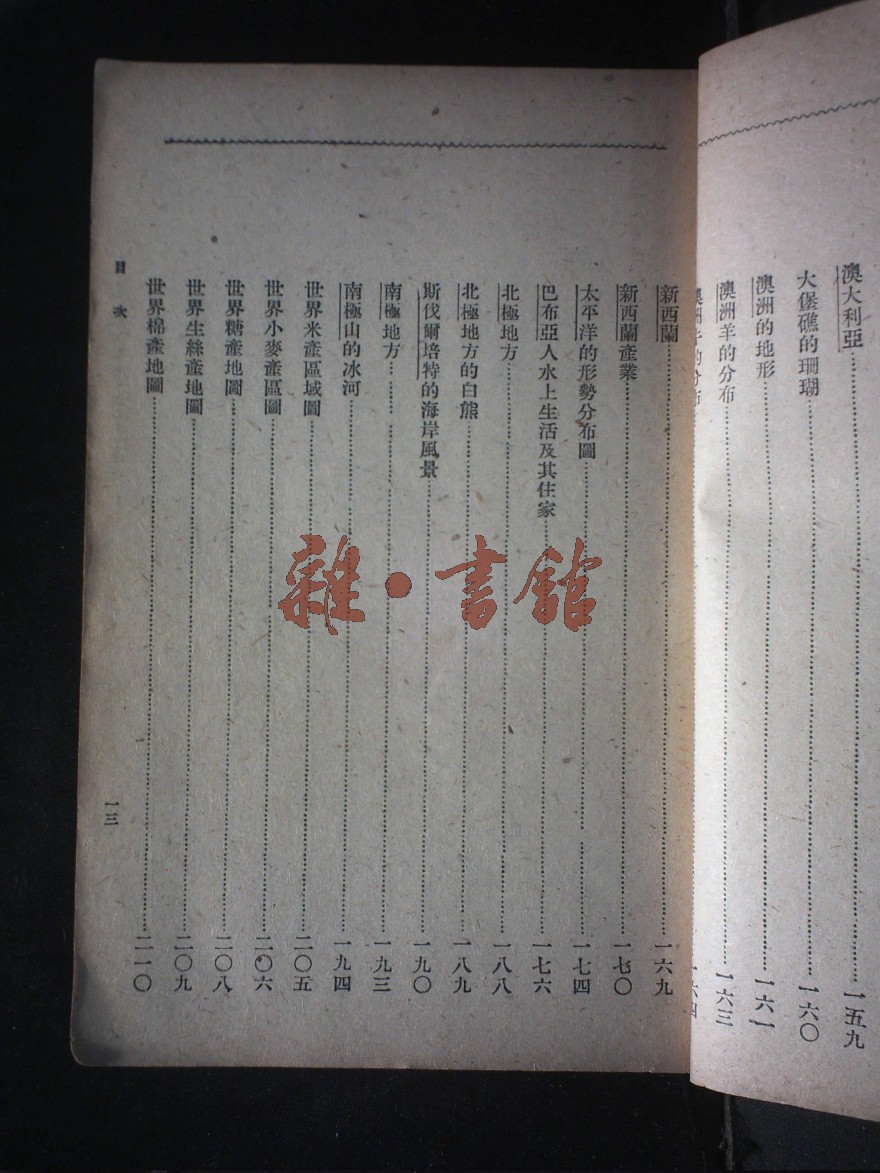 澳大利亞……一五九
大堡礁的珊瑚……一六〇
澳洲的地形……一六一
澳洲羊的分布……一六三
澳洲牛的分布……一六四
新西蘭……一六九
新西蘭產業……一七〇
太平洋的形勢分布圖……一七四
巴布亞人水上生活及其住家……一七六
北極地方……一八八
北極地方的白熊……一八九
斯伐爾培特的海岸風景……一九〇
南極地方……一九三
南極山的冰河……一九四
世界米產區域圖……二〇五
世界小麥產區圖……二〇六
世界糖產地圖……二〇八
世界生絲產地圖……二〇九
世界棉產地圖……二一〇
目次
一三
雜·書館